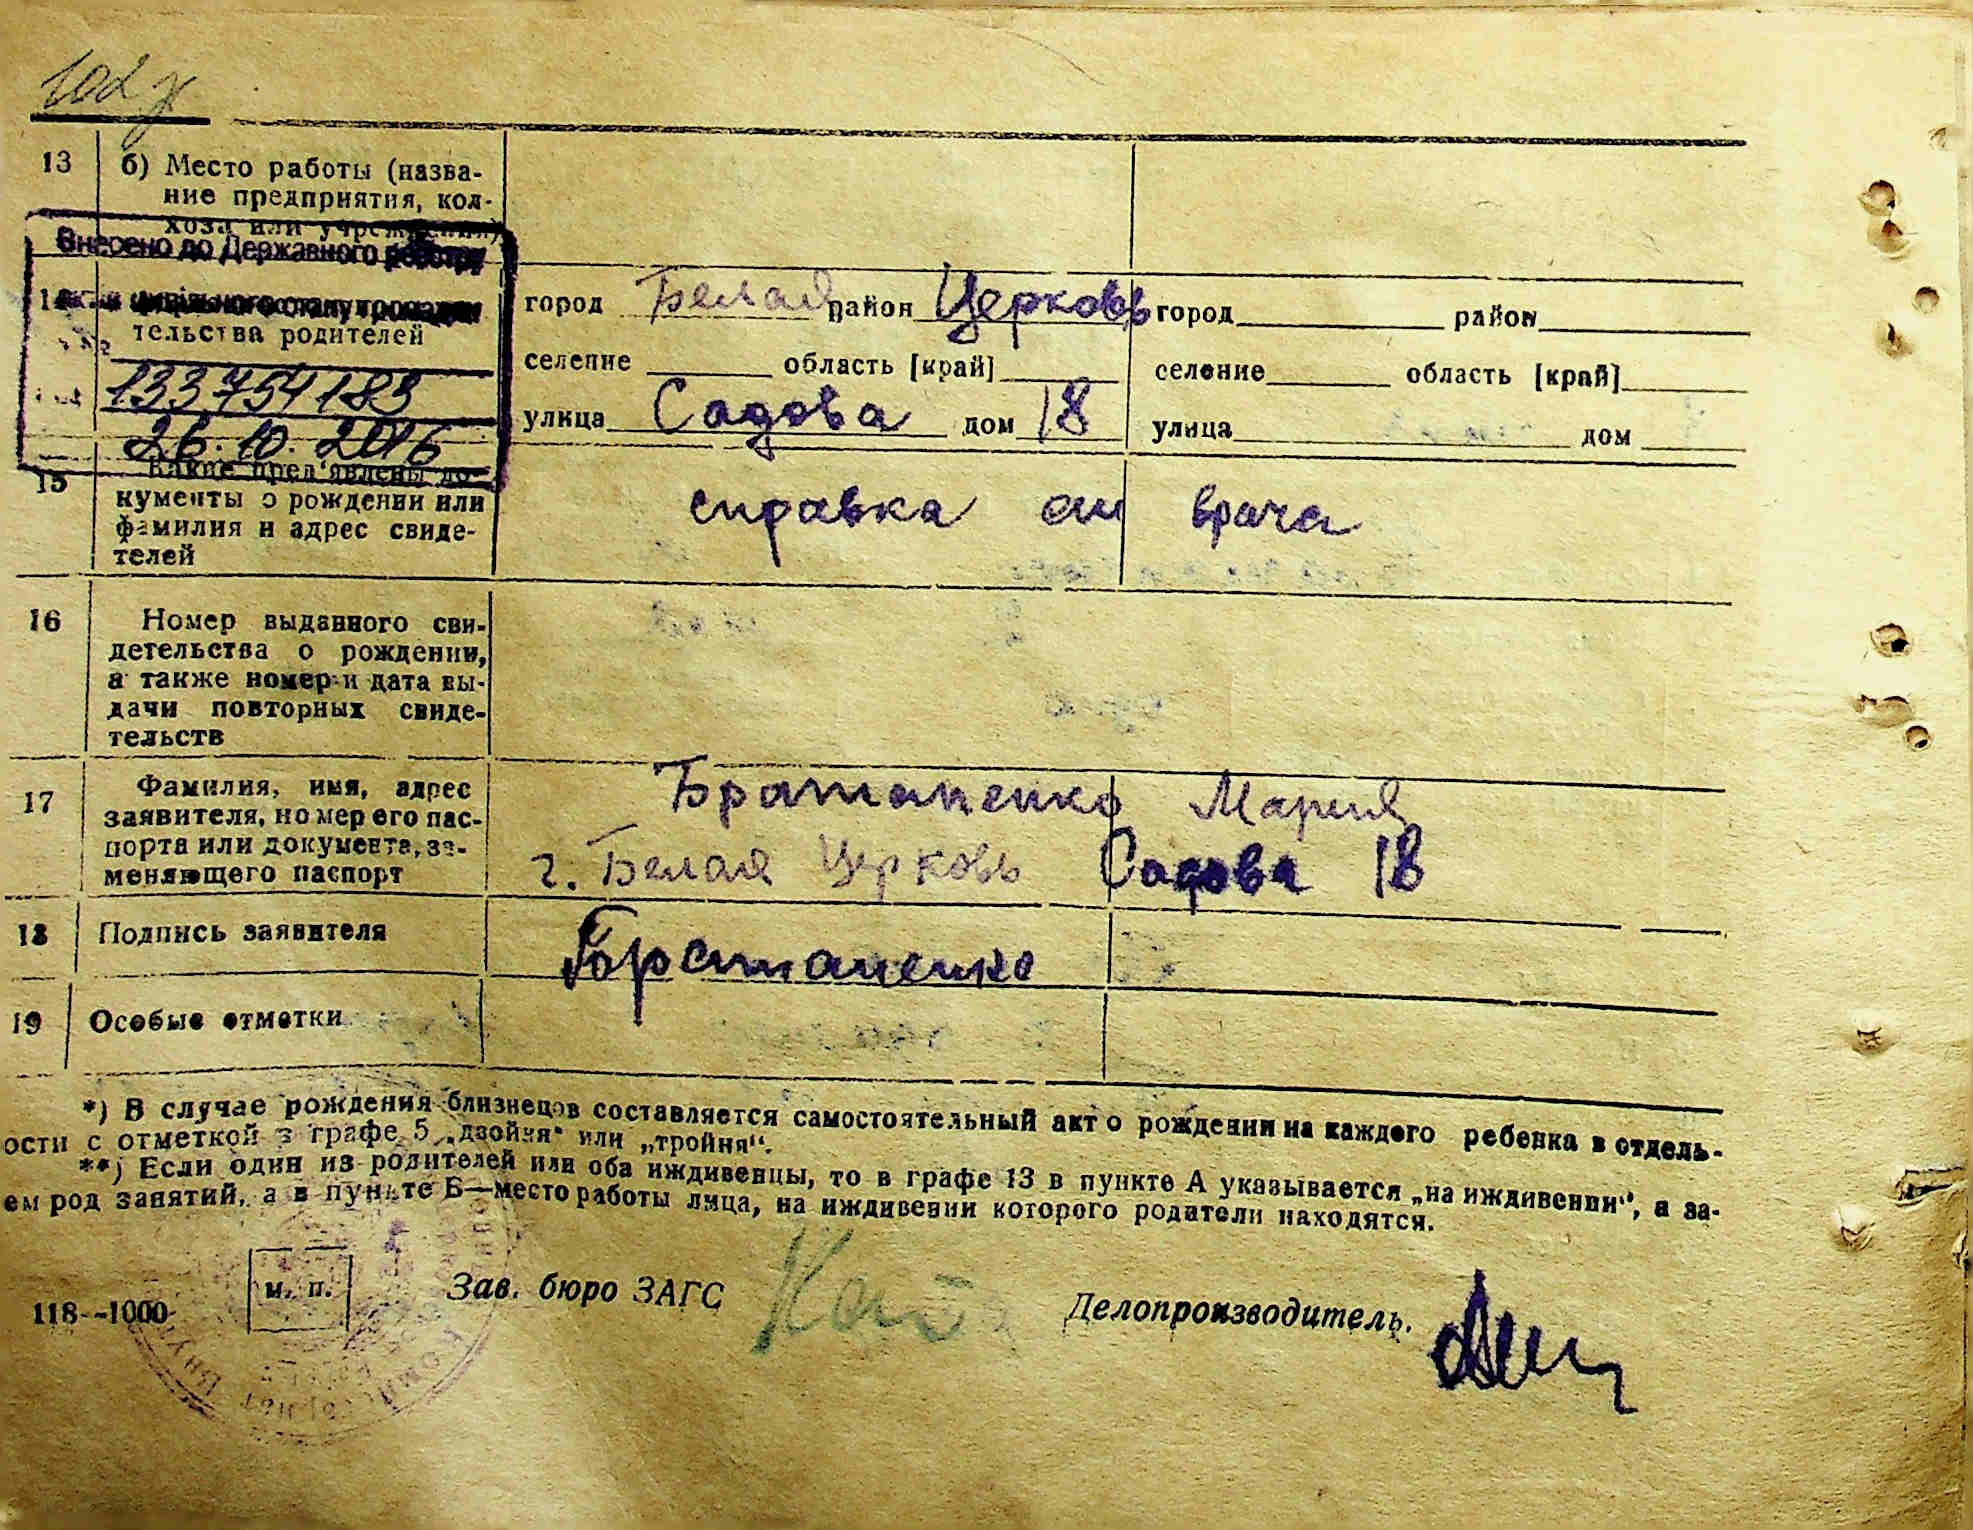 13 б) Место работы (назва-
ние предприятия, кол-
хоза или учреждения)
Внесено до Державного реєстру
актів цивільного стану громадян
14
тельства родителей
133754183
26.10.2016
город Белая район Церковь город район
селение область [край] селение область [край]
улица Садова дом 18 улица дом
15 Какие пред'явлены до-
кументы о рождении или
фамилия и адрес свиде-
телей
справка от врача
16 Номер выданного сви-
детельства о рождении,
а также номер и дата вы-
дачи повторных свиде-
тельств
17 Фамилия, имя, адрес
заявителя, номер его пас-
порта или документа, за-
меняющего паспорт
Братаненко Мария
г. Белая Церковь Садова 18
18 Подпись заявителя
Братаненко
19 Особые отметки
*) В случае рождения близнецов составляется самостоятельный акт о рождении на каждого ребенка в отдель-
ости с отметкой в графе 5 „двойня“ или „тройня“.
**) Если один из родителей или оба иждивенцы, то в графе 13 в пункте А указывается „на иждивении“, а за-
ем род занятий, а в пункте Б—место работы лица, на иждивении которого родители находятся.
м. п.
Зав. бюро ЗАГС
Делопроизводитель.
118--1000